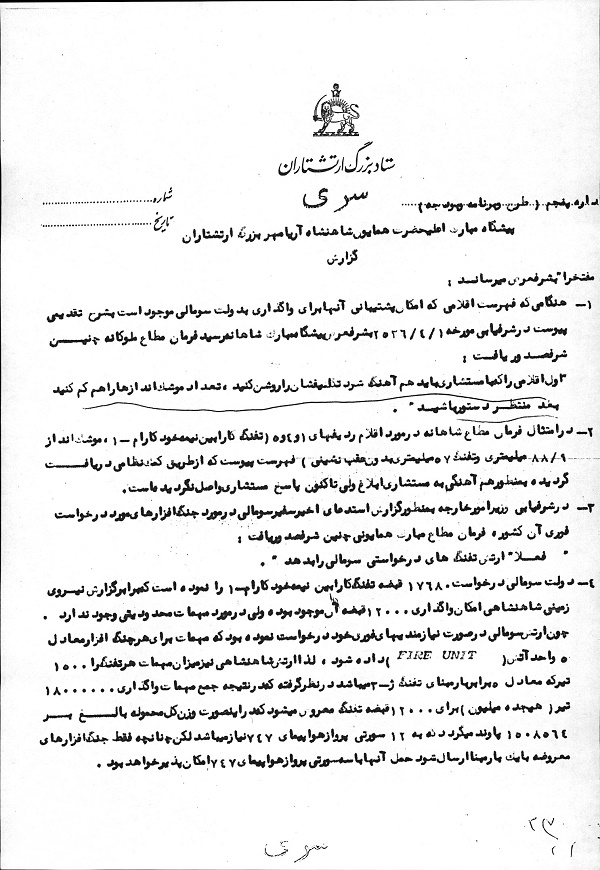 ستاد بزرگ ارتشتاران
سری
شماره
تاریخ
اداره پنجم (طرح وبرنامه وبودجه)
پیشگاه مبارک اعلیحضرت همایون شاهنشاه آریامهر بزرگ ارتشتاران
گزارش
مفتخرا" بشرفعرض میرساند :
۱- هنگامی که فهرست اقلامی که امکان پشتیبانی آنها برای واگذاری بدولت سومالی موجود است بشرح تقدیمی
پیوست در شرفیابی مورخه ۲۵۳۶/۴/۱ بشرفعرض پیشگاه مبارک شاهانه رسید فرمان مطاع ملوکانه چنین
شرفصدور یافت :
"اول اقلامی را که با مستشاری باید هم آهنگ شود تکلیفشان را روشن کنید ، تعداد موشک اندازها را هم کم کنید
بعد منتظر دستور باشید" .
۲- در امتثال فرمان مطاع شاهانه در مورد اقلام ردیفهای ۱ و ۴ و ۵ (تفنگ کارابین نیمه خودکار ام-۱ ، موشک انداز
۸۸/۹ میلیمتری وتفنگ ۵۷ میلیمتری بدون عقب نشینی) فهرست پیوست که از طریق کمک نظامی دریافت
گردیده بمنظور هم آهنگی به مستشاری ابلاغ ولی تاکنون پاسخ مستشاری واصل نگردیده است.
۳- در شرفیابی وزیر امور خارجه بمنظور گزارش استدعای اخیر سفیر سومالی در مورد جنگ افزارهای مورد درخواست
فوری آن کشور ، فرمان مطاع مبارک همایونی چنین شرفصدور یافت :
" فعلا" ارتش تفنگ های درخواستی سومالی را بدهد " .
۴- دولت سومالی درخواست ۱۷۶۸۰ قبضه تفنگ کارابین نیمه خودکار ام-۱ را نموده است که برابر گزارش نیروی
زمینی شاهنشاهی امکان واگذاری ۱۲۰۰۰ قبضه آن موجود بوده ولی در مورد مهمات محدودیتی وجود ندارد .
چون ارتش سومالی در صورت نیازمندیهای فوری خود درخواست نموده بود که مهمات برای هر جنگ افزار معادل
۵ واحد آتش ( FIRE UNIT ) داده شود ، لذا ارتش شاهنشاهی نیز میزان مهمات هر تفنگ را ۱۵۰۰
تیر که معادل ۵ برابر بار مبنای تفنگ ژ-۳ میباشد در نظر گرفته که در نتیجه جمع مهمات واگذاری ۱۸۰۰۰۰۰۰
تیر (هیجده میلیون) برای ۱۲۰۰۰ قبضه تفنگ معروض میشود که در اینصورت وزن کل محموله بالغ بر
۱۵۰۸۵۶۴ پاوند میگردد که به ۱۲ سورتی پرواز هواپیمای ۷۴۷ نیاز میباشد لکن چنانچه فقط جنگ افزارهای
معروضه با یک بار مبنا ارسال شود حمل آنها با سه سورتی پرواز هواپیمای ۷۴۷ امکان پذیر خواهد بود .
سری